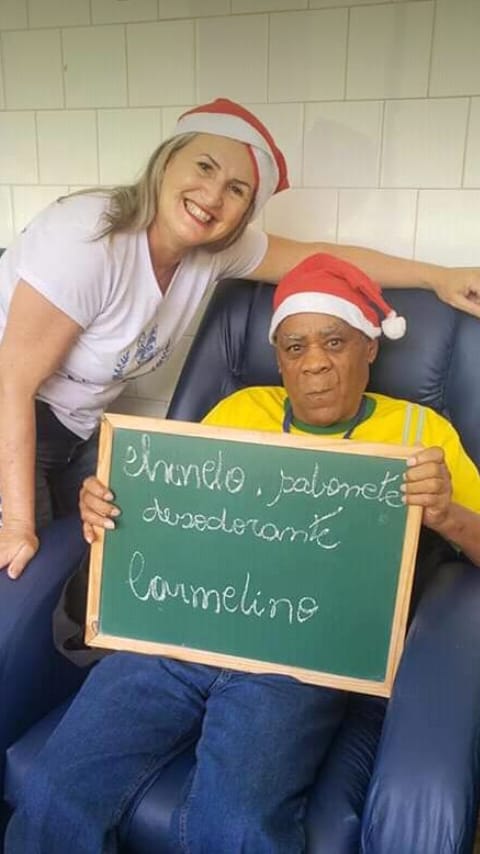 chinelo, sabonete
desodorante
Carmelino